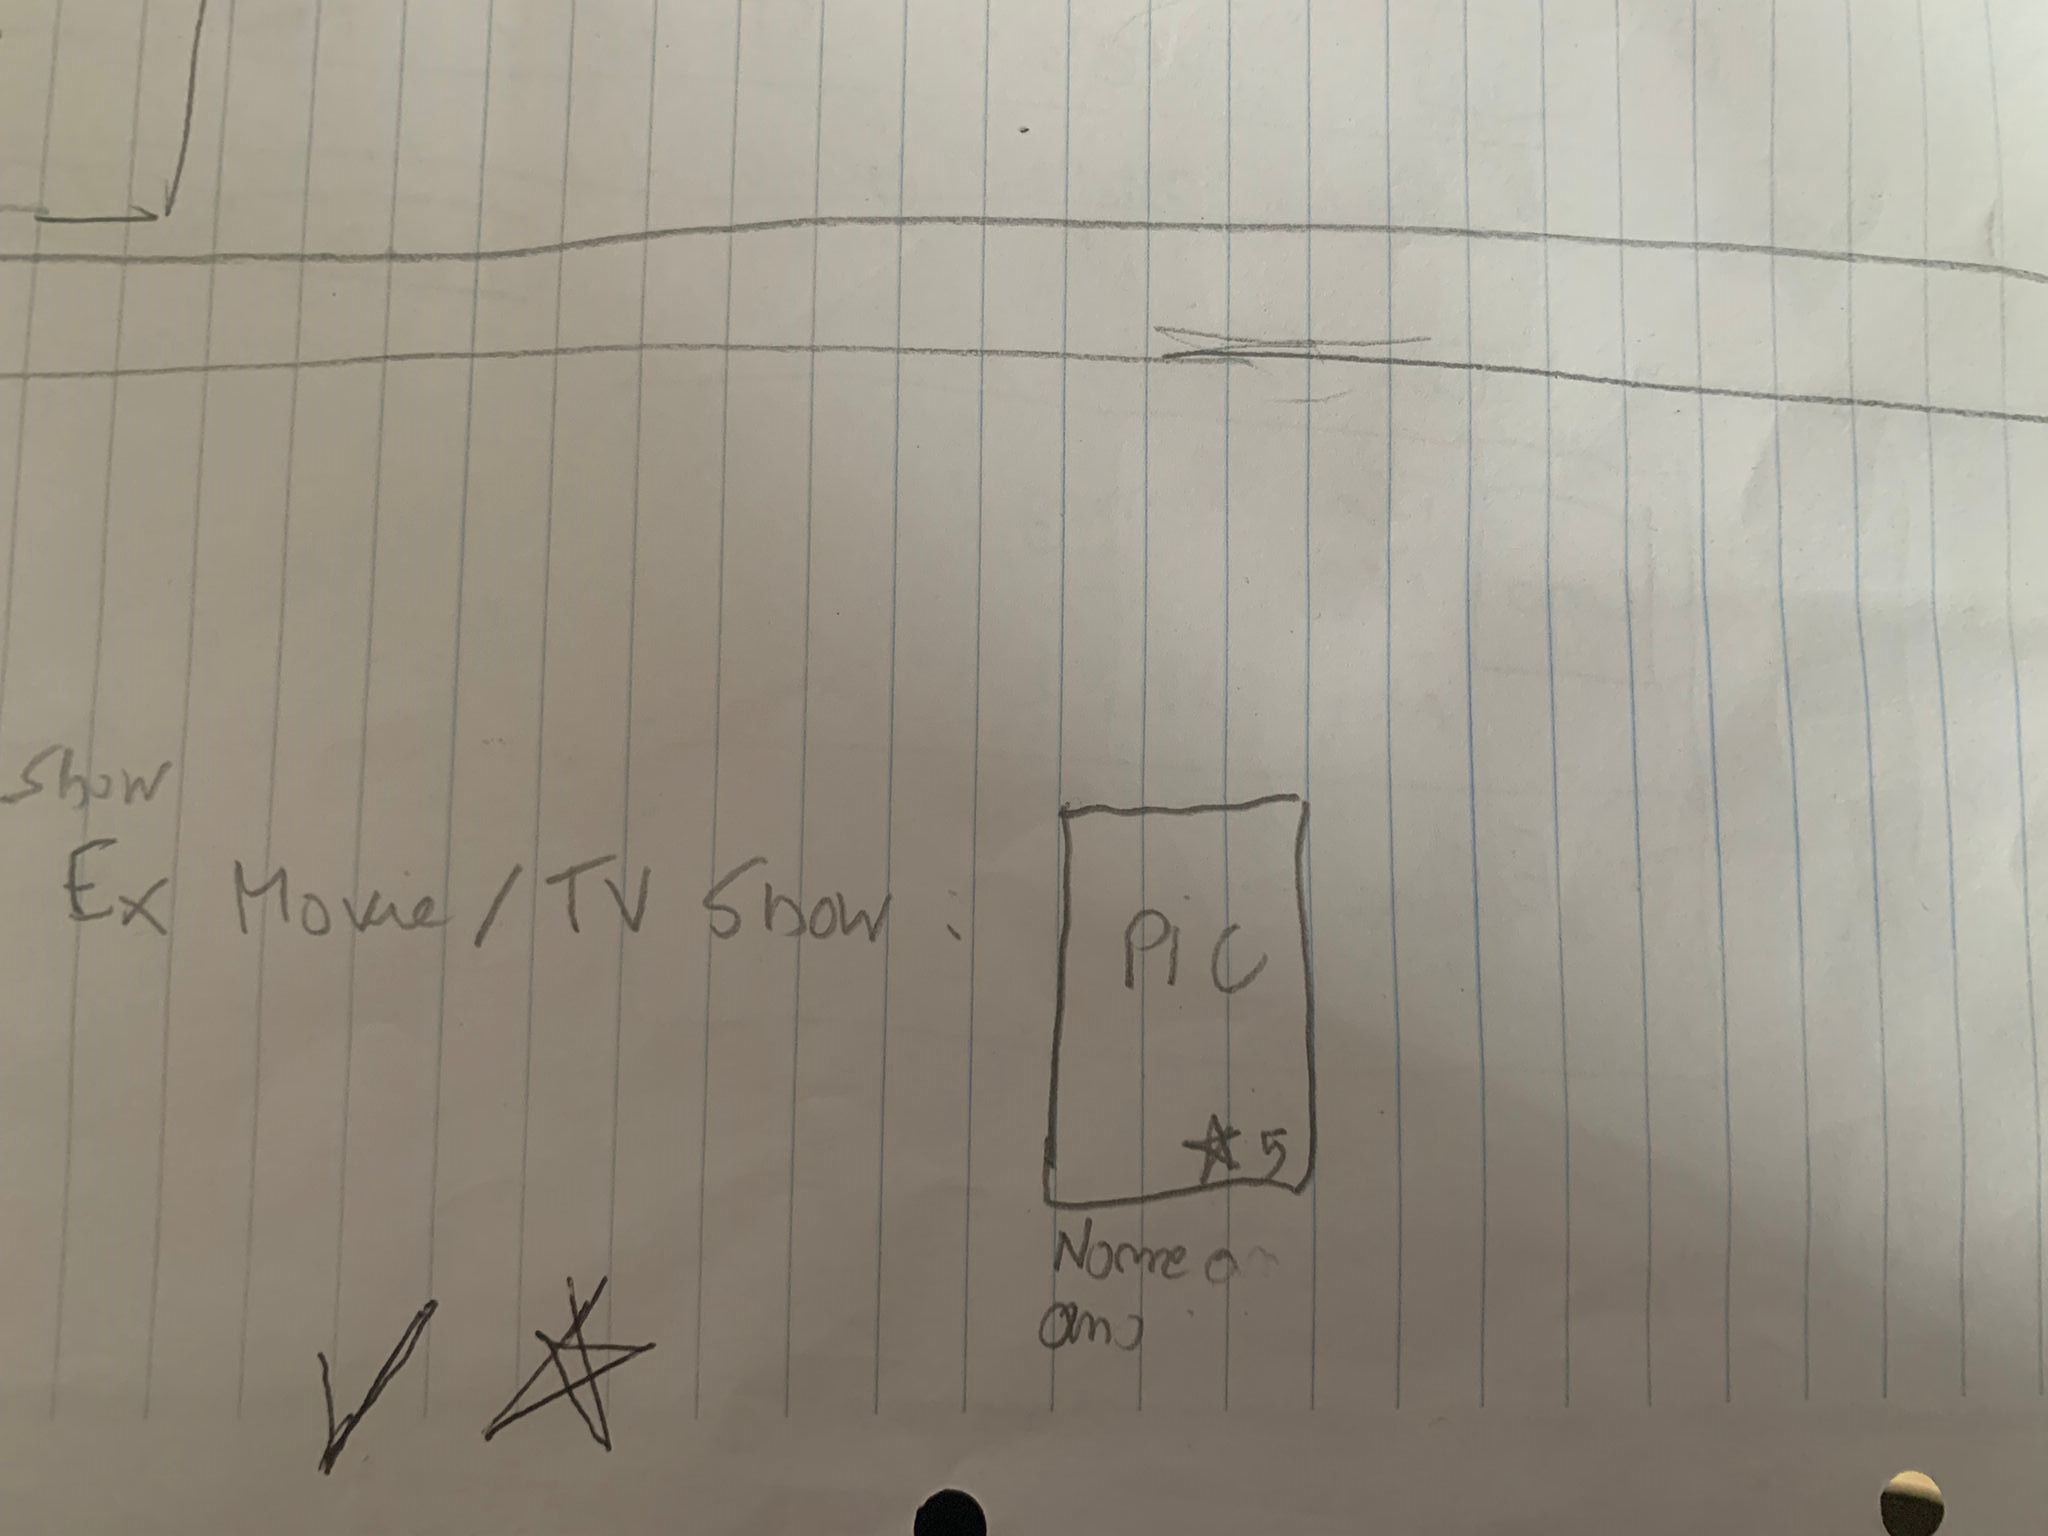 Show
Ex Movie/TV Show:
PiC
5
Nome
ano